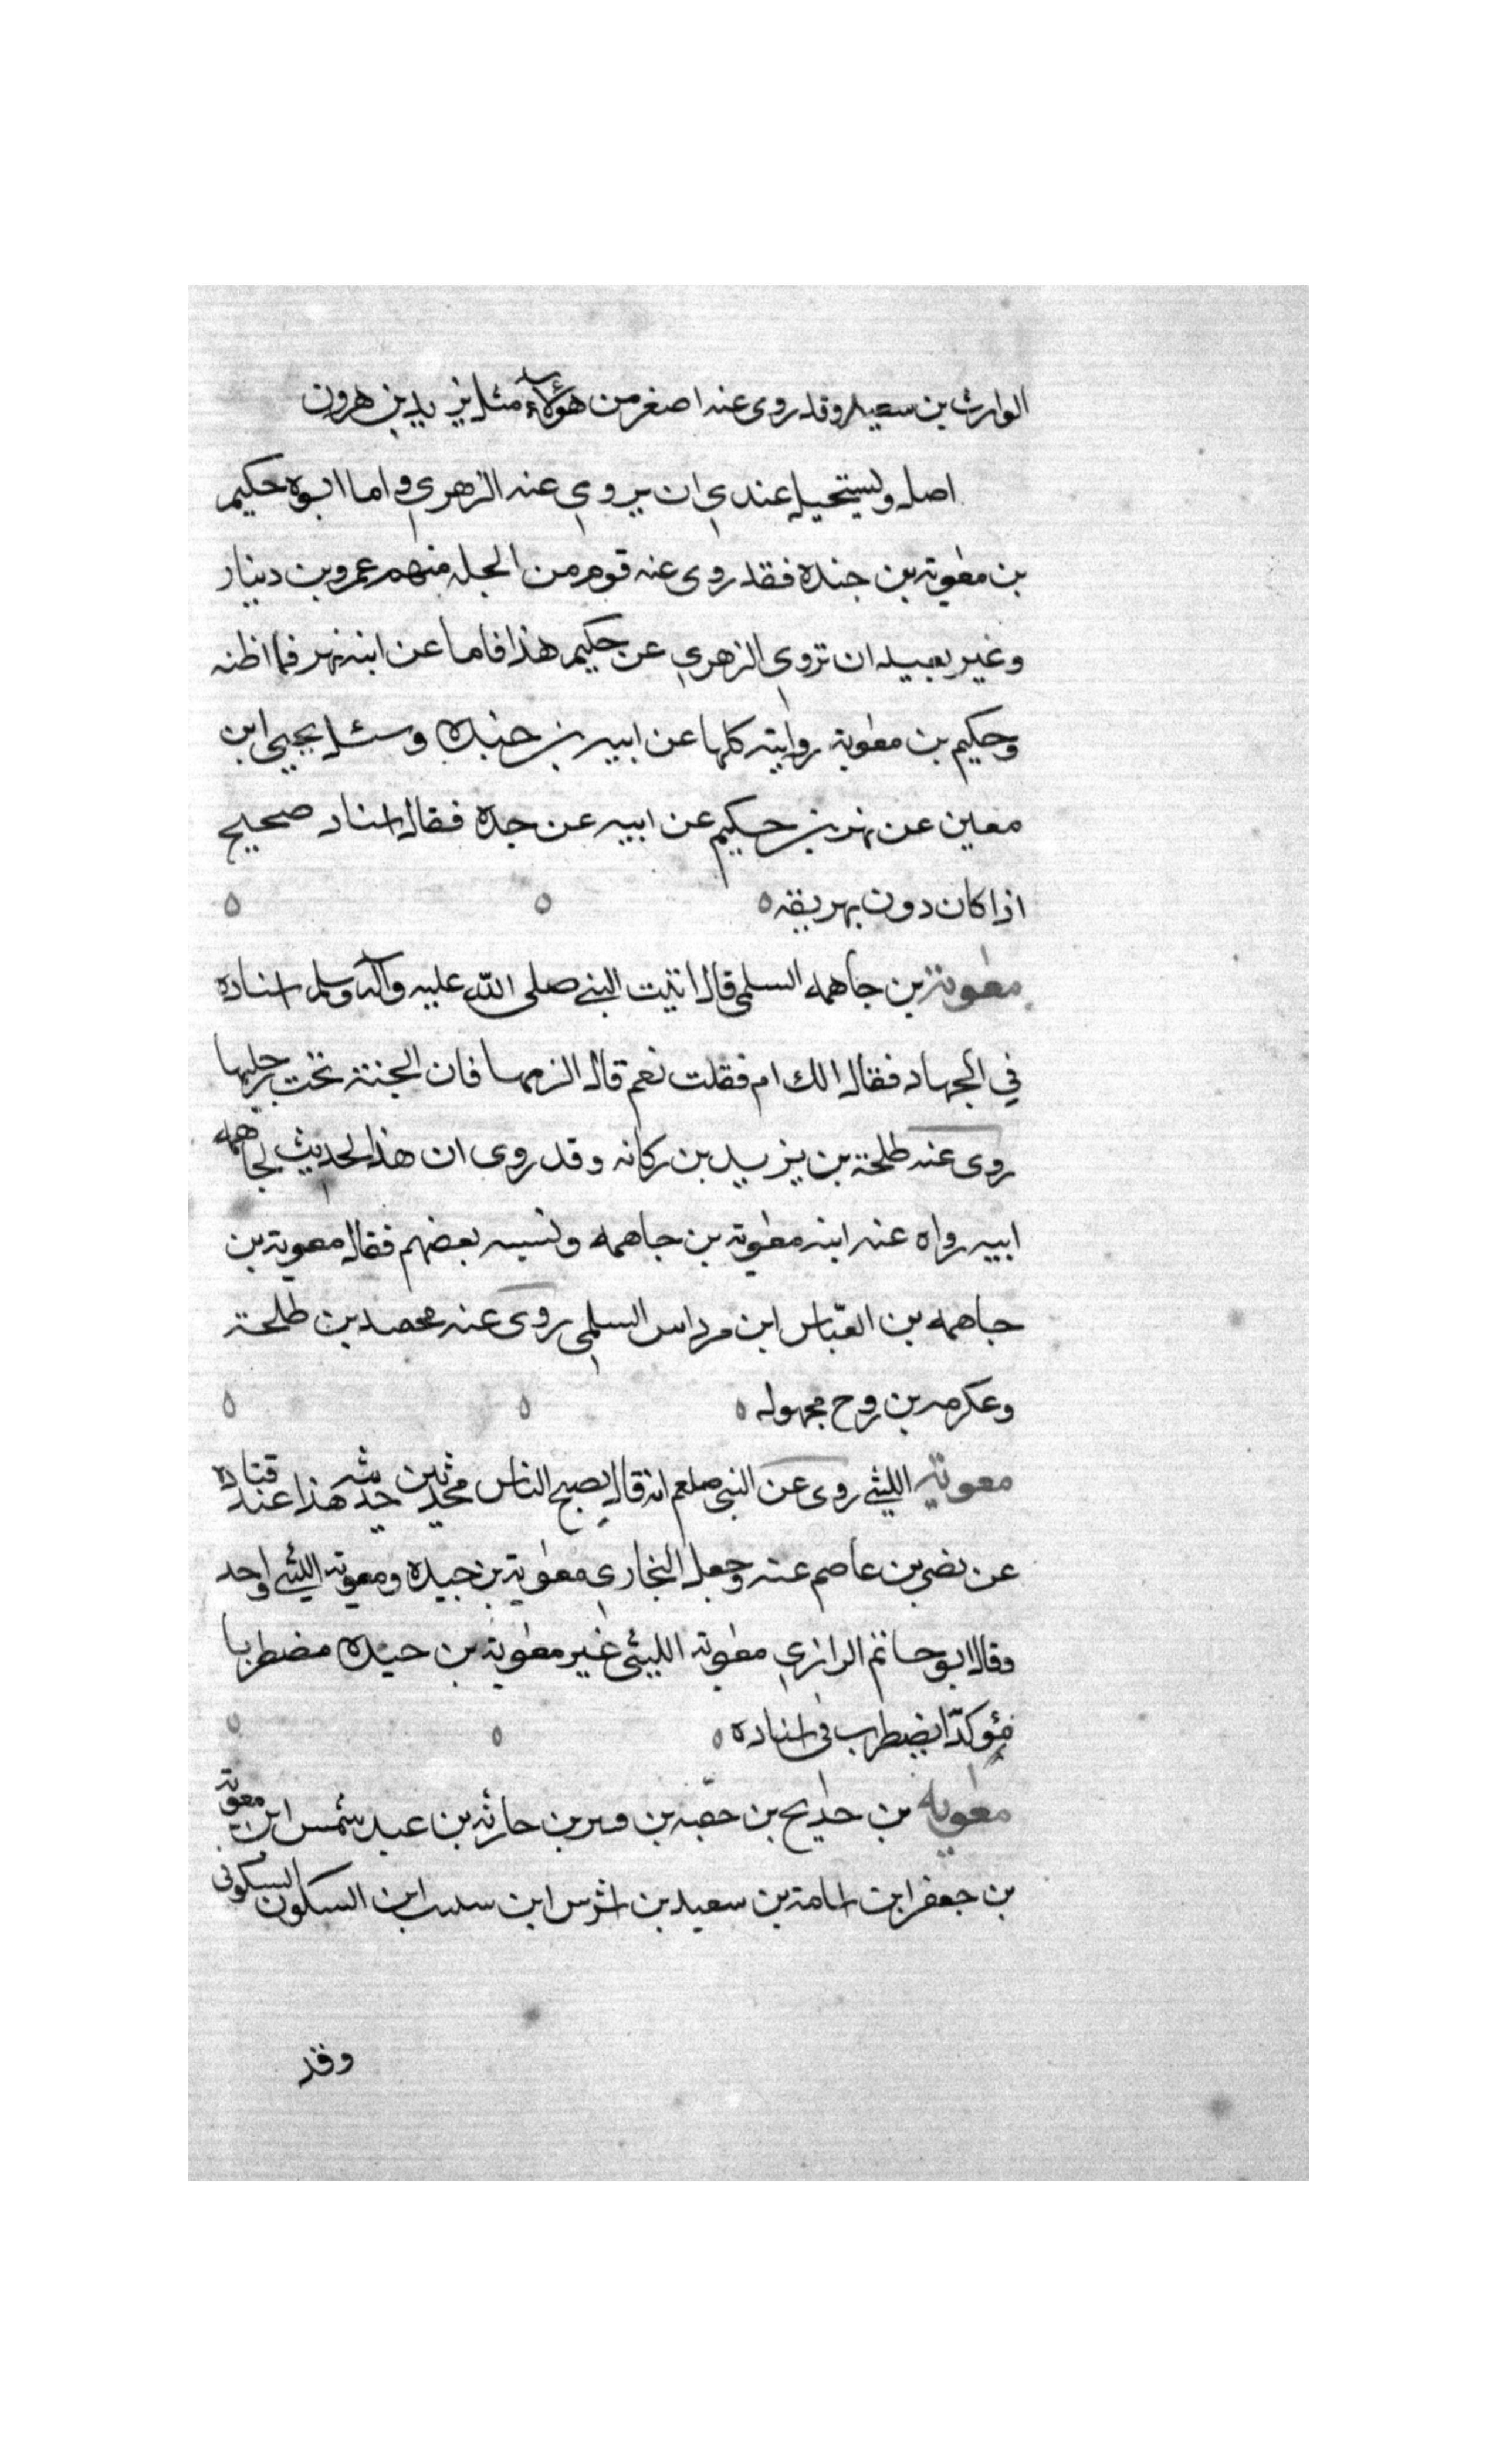 الوارث بن سعيد وقد روى عنه اصغر من هؤلاء مثل يزيد بن هرون
اصل ويستحيل عندي ان يروي عنه الزهري واما ابوه حكيم
بن معوية بن جنده فقد روى عنه قوم من الجله منهم عمرو بن دينار
وغير بعيد ان تروي الزهري عن حكيم هذا فاما عن ابنه بهز فما اظنه
وحكيم بن معوية روايته كلها عن ابيه بن حنيده وسئل يحيى ابن
معين عن بهز بن حكيم عن ابيه عن جده فقال اسناد صحيح
اذا كان دون بهز يقه
معوية بن جاهمه السلمي قال اتيت النبي صلى الله عليه وآله وسلم اسناده
في الجهاد فقال الك ام فقلت نعم قال الزمها فان الجنة تحت رجليها
روى عنه طلحة بن يزيد بن ركانه وقد روى ان هذا الحديث لجاهمه
ابيه رواه عنه ابنه معوية بن جاهمه ونسبه بعضهم فقال معوية بن
جاهمه بن العباس ابن مرداس السلمي روى عنه محمد بن طلحة
وعكرمه بن روح مجهول
معوية الليثي روى عن النبي صلعم انه قال يصبح الناس مجدبين حديثه هذا عند قتاده
عن نضر بن عاصم عنه وجعل البخاري معوية بن حيده ومعوية الليثي واحد
وقال ابو حاتم الرازي معوية الليثي غير معوية بن حيده مضطربا
مؤكدا يضطرب في اسناده
معويه بن حديج بن حقبه بن قبر بن حارثه بن عبد شمس ابن معوية
بن جعفر ابن اسامة بن سعيد بن اشرس ابن ابن السكون السكوني
وقد